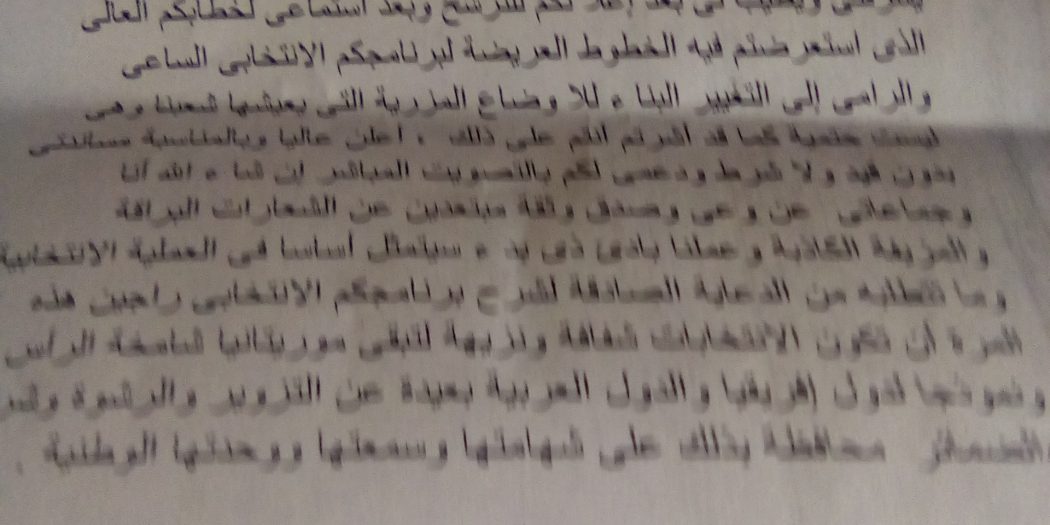 يشرفني ويطيب لي بعد إعلانكم للترشح وبعد استماعي لخطابكم العالي
الذي استعرضتم فيه الخطوط العريضة لبرنامجكم الانتخابي الساعي
والرامي إلى التغيير البناء للأوضاع المزرية التي يعيشها شعبنا وهي
ليست حتمية كما قد أشرتم أنتم على ذلك ، أعلن عاليا وبالمناسبة مساندتي
بدون قيد ولا شرط ودعمي لكم بالتصويت المباشر إن شاء الله أنا
وجماعتي عن وعي وصدق وثقة مبتعدين عن الشعارات البراقة
والمزيفة الكاذبة وعملنا بادئ ذي بدء سيتمثل أساسا في العملية الانتخابية
وما تتطلبه من الدعاية الصادقة لشرح برنامجكم الانتخابي راجين هذه
المرة أن تكون الانتخابات شفافة ونزيهة لتبقى موريتانيا شامخة الرأس
ونموذجا لدول إفريقيا والدول العربية بعيدة عن التزوير والرشوة
الضمائر محافظة بذلك على شهامتها وسمعتها ووحدتها الوطنية .